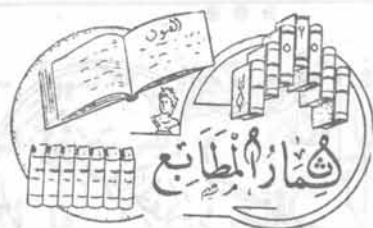 الفنون
ثِمَارُ الْمَطَابِع